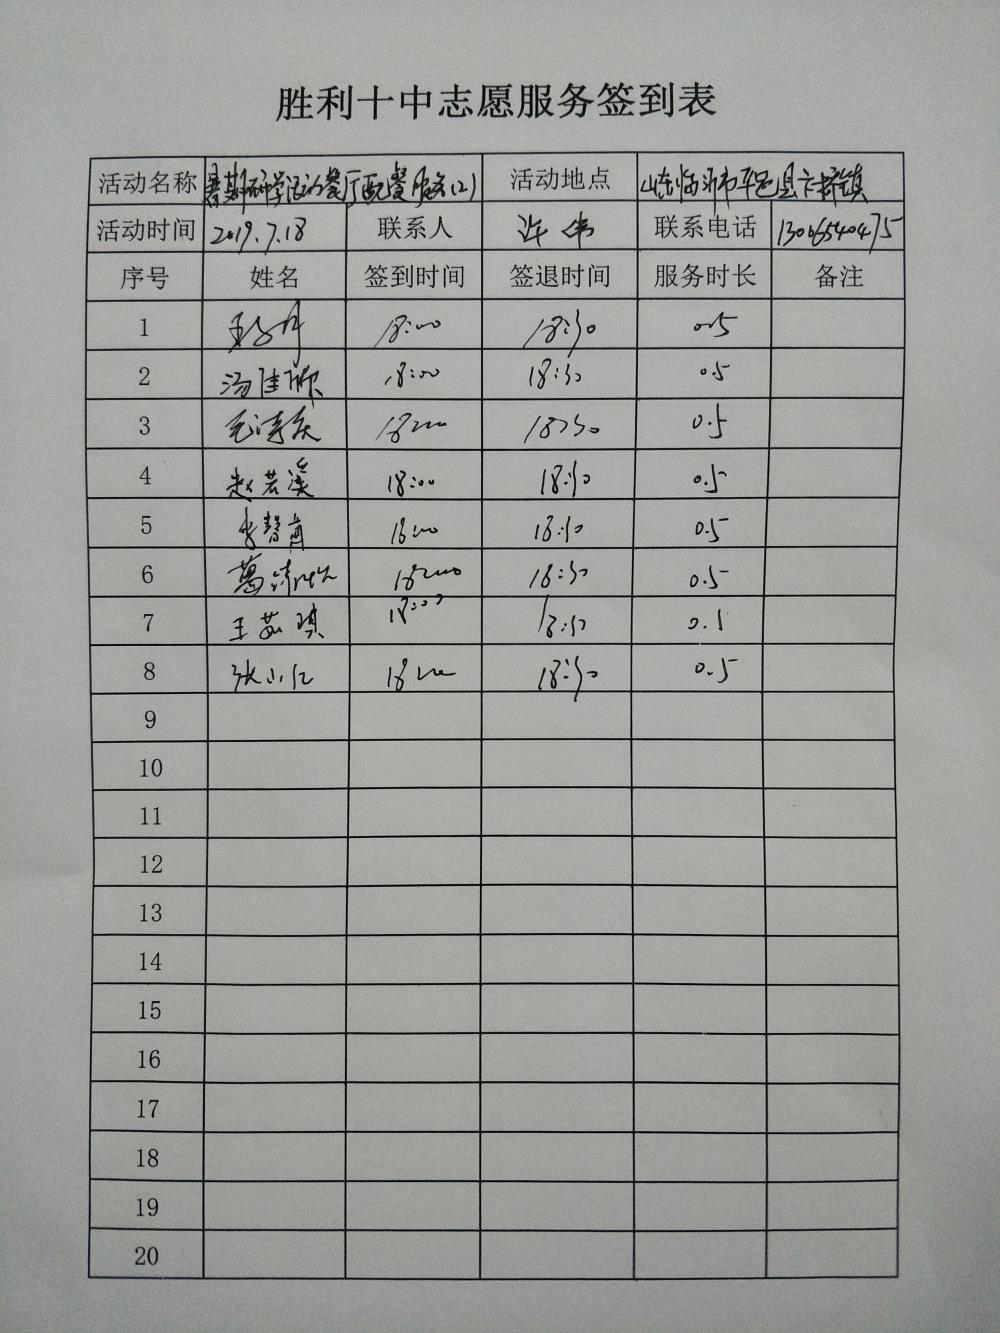 胜利十中志愿服务签到表
活动名称 暑期研学活动餐厅配餐服务(2) 活动地点 山东临沂市平邑县卞桥镇
活动时间 2019.7.18 联系人 许伟 联系电话 13065540475
序号 姓名 签到时间 签退时间 服务时长 备注
1 18:00 18:30 0.5
2 汤佳欣 18:00 18:30 0.5
3 18:00 18:30 0.5
4 赵若溪 18:00 18:30 0.5
5 李馨甯 18:00 18:30 0.5
6 葛 18:00 18:30 0.5
7 王茹琪 18:00 18:30 0.5
8 张 18:00 18:30 0.5
9
10
11
12
13
14
15
16
17
18
19
20